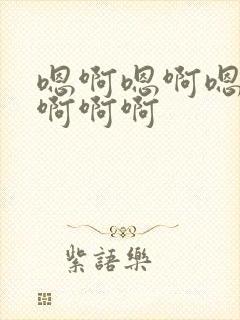 嗯啊嗯啊嗯
啊啊啊
紫語樂